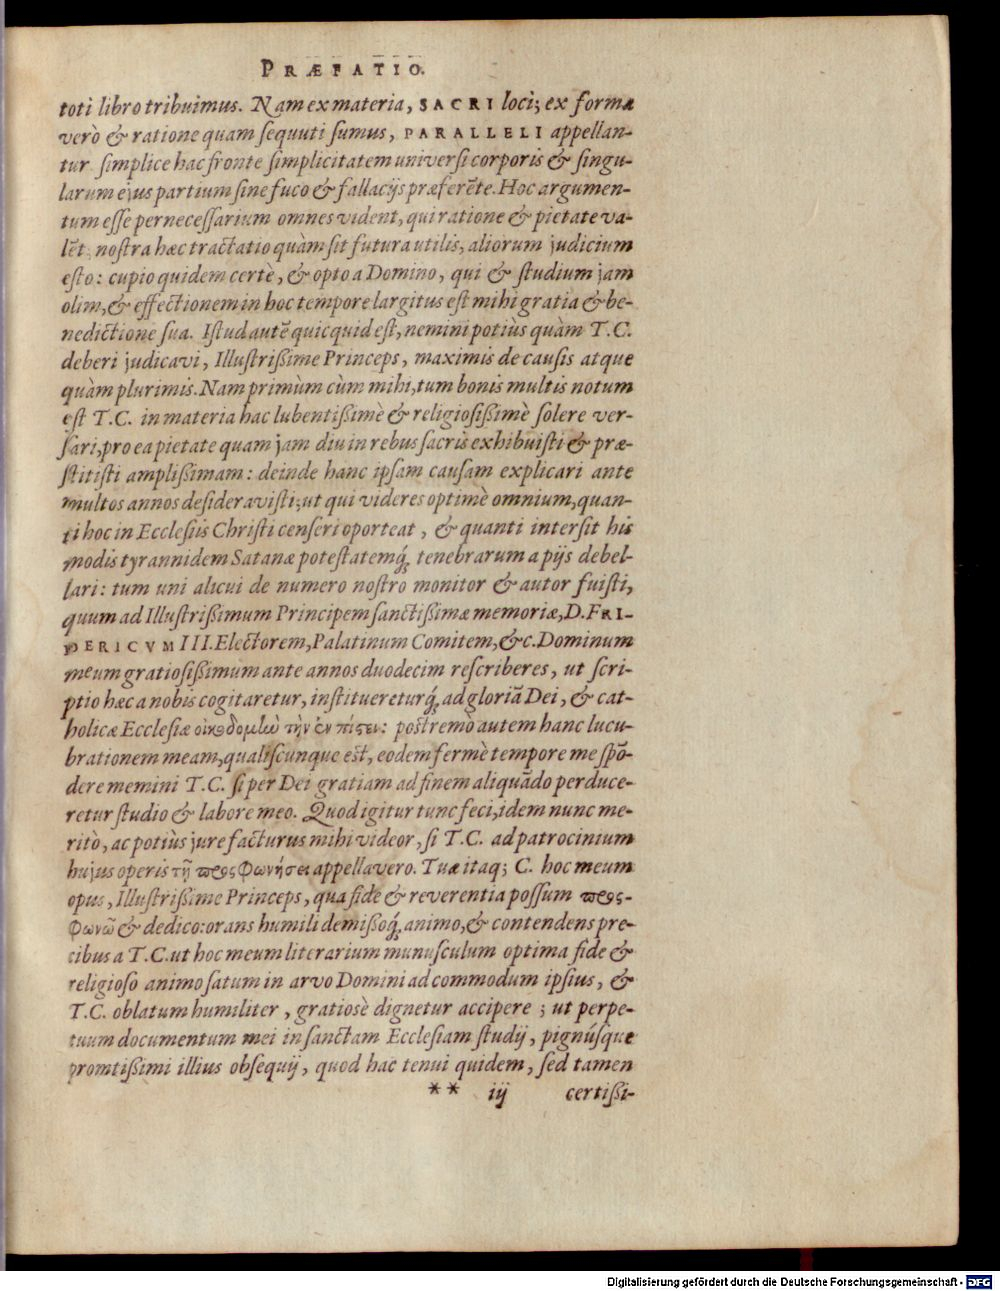 PRÆFATIO.
toti libro tribuimus. Nam ex materia, SACRI loci; ex forma
verò & ratione quam sequuti sumus, PARALLELI appellan-
tur simplice hac fronte simplicitatem universi corporis & singu-
larum ejus partium sine fuco & fallacijs præferēte. Hoc argumen-
tum esse pernecessarium omnes vident, qui ratione & pietate va-
lēt: nostra hæc tractatio quàm sit futura utilis, aliorum judicium
esto: cupio quidem certè, & opto a Domino, qui & studium jam
olim, & effectionem in hoc tempore largitus est mihi gratia & be-
nedictione sua. Istud autē quicquid est, nemini potiùs quàm T.C.
deberi judicavi, Illustrißime Princeps, maximis de causis atque
quàm plurimis. Nam primùm cùm mihi, tum bonis multis notum
est T.C. in materia hac lubentißimè & religiosißimè solere ver-
sari, pro ea pietate quam jam diu in rebus sacris exhibuisti & præ-
stitisti amplißimam: deinde hanc ipsam causam explicari ante
multos annos desideravisti; ut qui videres optimè omnium, quan-
ti hoc in Ecclesiis Christi censeri oporteat, & quanti intersit his
modis tyrannidem Satanæ potestatemq́; tenebrarum a pijs debel-
lari: tum uni alicui de numero nostro monitor & autor fuisti,
quum ad Illustrißimum Principem sanctißimæ memoriæ, D. FRI-
DERICVM III. Electorem, Palatinum Comitem, &c. Dominum
meum gratiosißimum ante annos duodecim rescriberes, ut scri-
ptio hæc a nobis cogitaretur, institueretur q́; ad gloriā Dei, & cat-
holicæ Ecclesiæ οἰκοδομὴν τὴν ἐν πίστει: postremò autem hanc lucu-
brationem meam, qualiscunque est, eodem fermè tempore me spō-
dere memini T.C. si per Dei gratiam ad finem aliquādo perduce-
retur studio & labore meo. Quod igitur tunc feci, idem nunc me-
ritò, ac potiùs jure facturus mihi videor, si T.C. ad patrocinium
hujus operis τῇ προςφωνήσει appellavero. Tuæ itaq; C. hoc meum
opus, Illustrißime Princeps, qua fide & reverentia possum προς-
φωνῶ & dedico: orans humili demißoq́; animo, & contendens pre-
cibus a T.C. ut hoc meum literarium munusculum optima fide &
religioso animo satum in arvo Domini ad commodum ipsius, &
T.C. oblatum humiliter, gratiosè dignetur accipere; ut perpe-
tuum documentum mei in sanctam Ecclesiam studij, pignúsque
promtißimi illius obsequij, quod hac tenui quidem, sed tamen
** iij certißi-
Digitalisierung gefördert durch die Deutsche Forschungsgemeinschaft - DFG